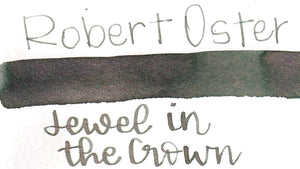 Robert Oster
Jewel in
the Crown